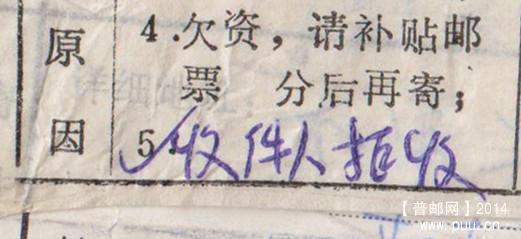 原因
4.欠资，请补贴邮
票　分后再寄；
5.收件人拒收
【普邮网】2014
www.puu.cn